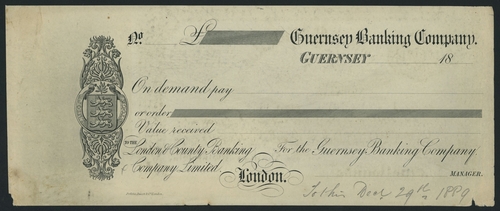 No. £ Guernsey Banking Company.
GUERNSEY 18
On demand pay
or order
Value received
TO THE London & County Banking For the Guernsey Banking Company
Company Limited,
London. MANAGER.
Decr 29th 1889